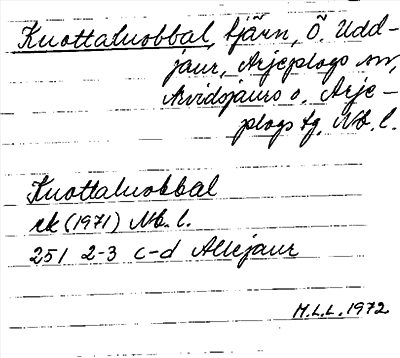 Kuottaluobbal, tjärn, Ö. Udd-
jaur, Arjeplogs sn,
Arvidsjaurs o. Arje-
plogs tg, Nb. l.
Kuottaluobbal
ek (1971) Nb. l.
251 2-3 c-d Allejaur
M.L.L. 1972